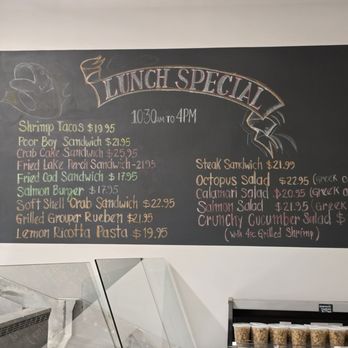 LUNCH SPECIAL
10:30AM TO 4PM
Shrimp Tacos $19.95
Poor Boy Sandwich $21.95
Crab Cake Sandwich $25.95
Fried Lake Perch Sandwich -21.95
Fried Cod Sandwich $17.95
Salmon Burger $17.95
Soft Shell Crab Sandwich $22.95
Grilled Grouper Rueben $21.95
Lemon Ricotta Pasta $19.95
Steak Sandwich $21.99
Octopus Salad $22.95 (Greek o
Calamari Salad $20.95 (Greek o
Salmon Salad $21.95 (Greek
Crunchy Cucumber Salad $
(With 4pc Grilled Shrimp)